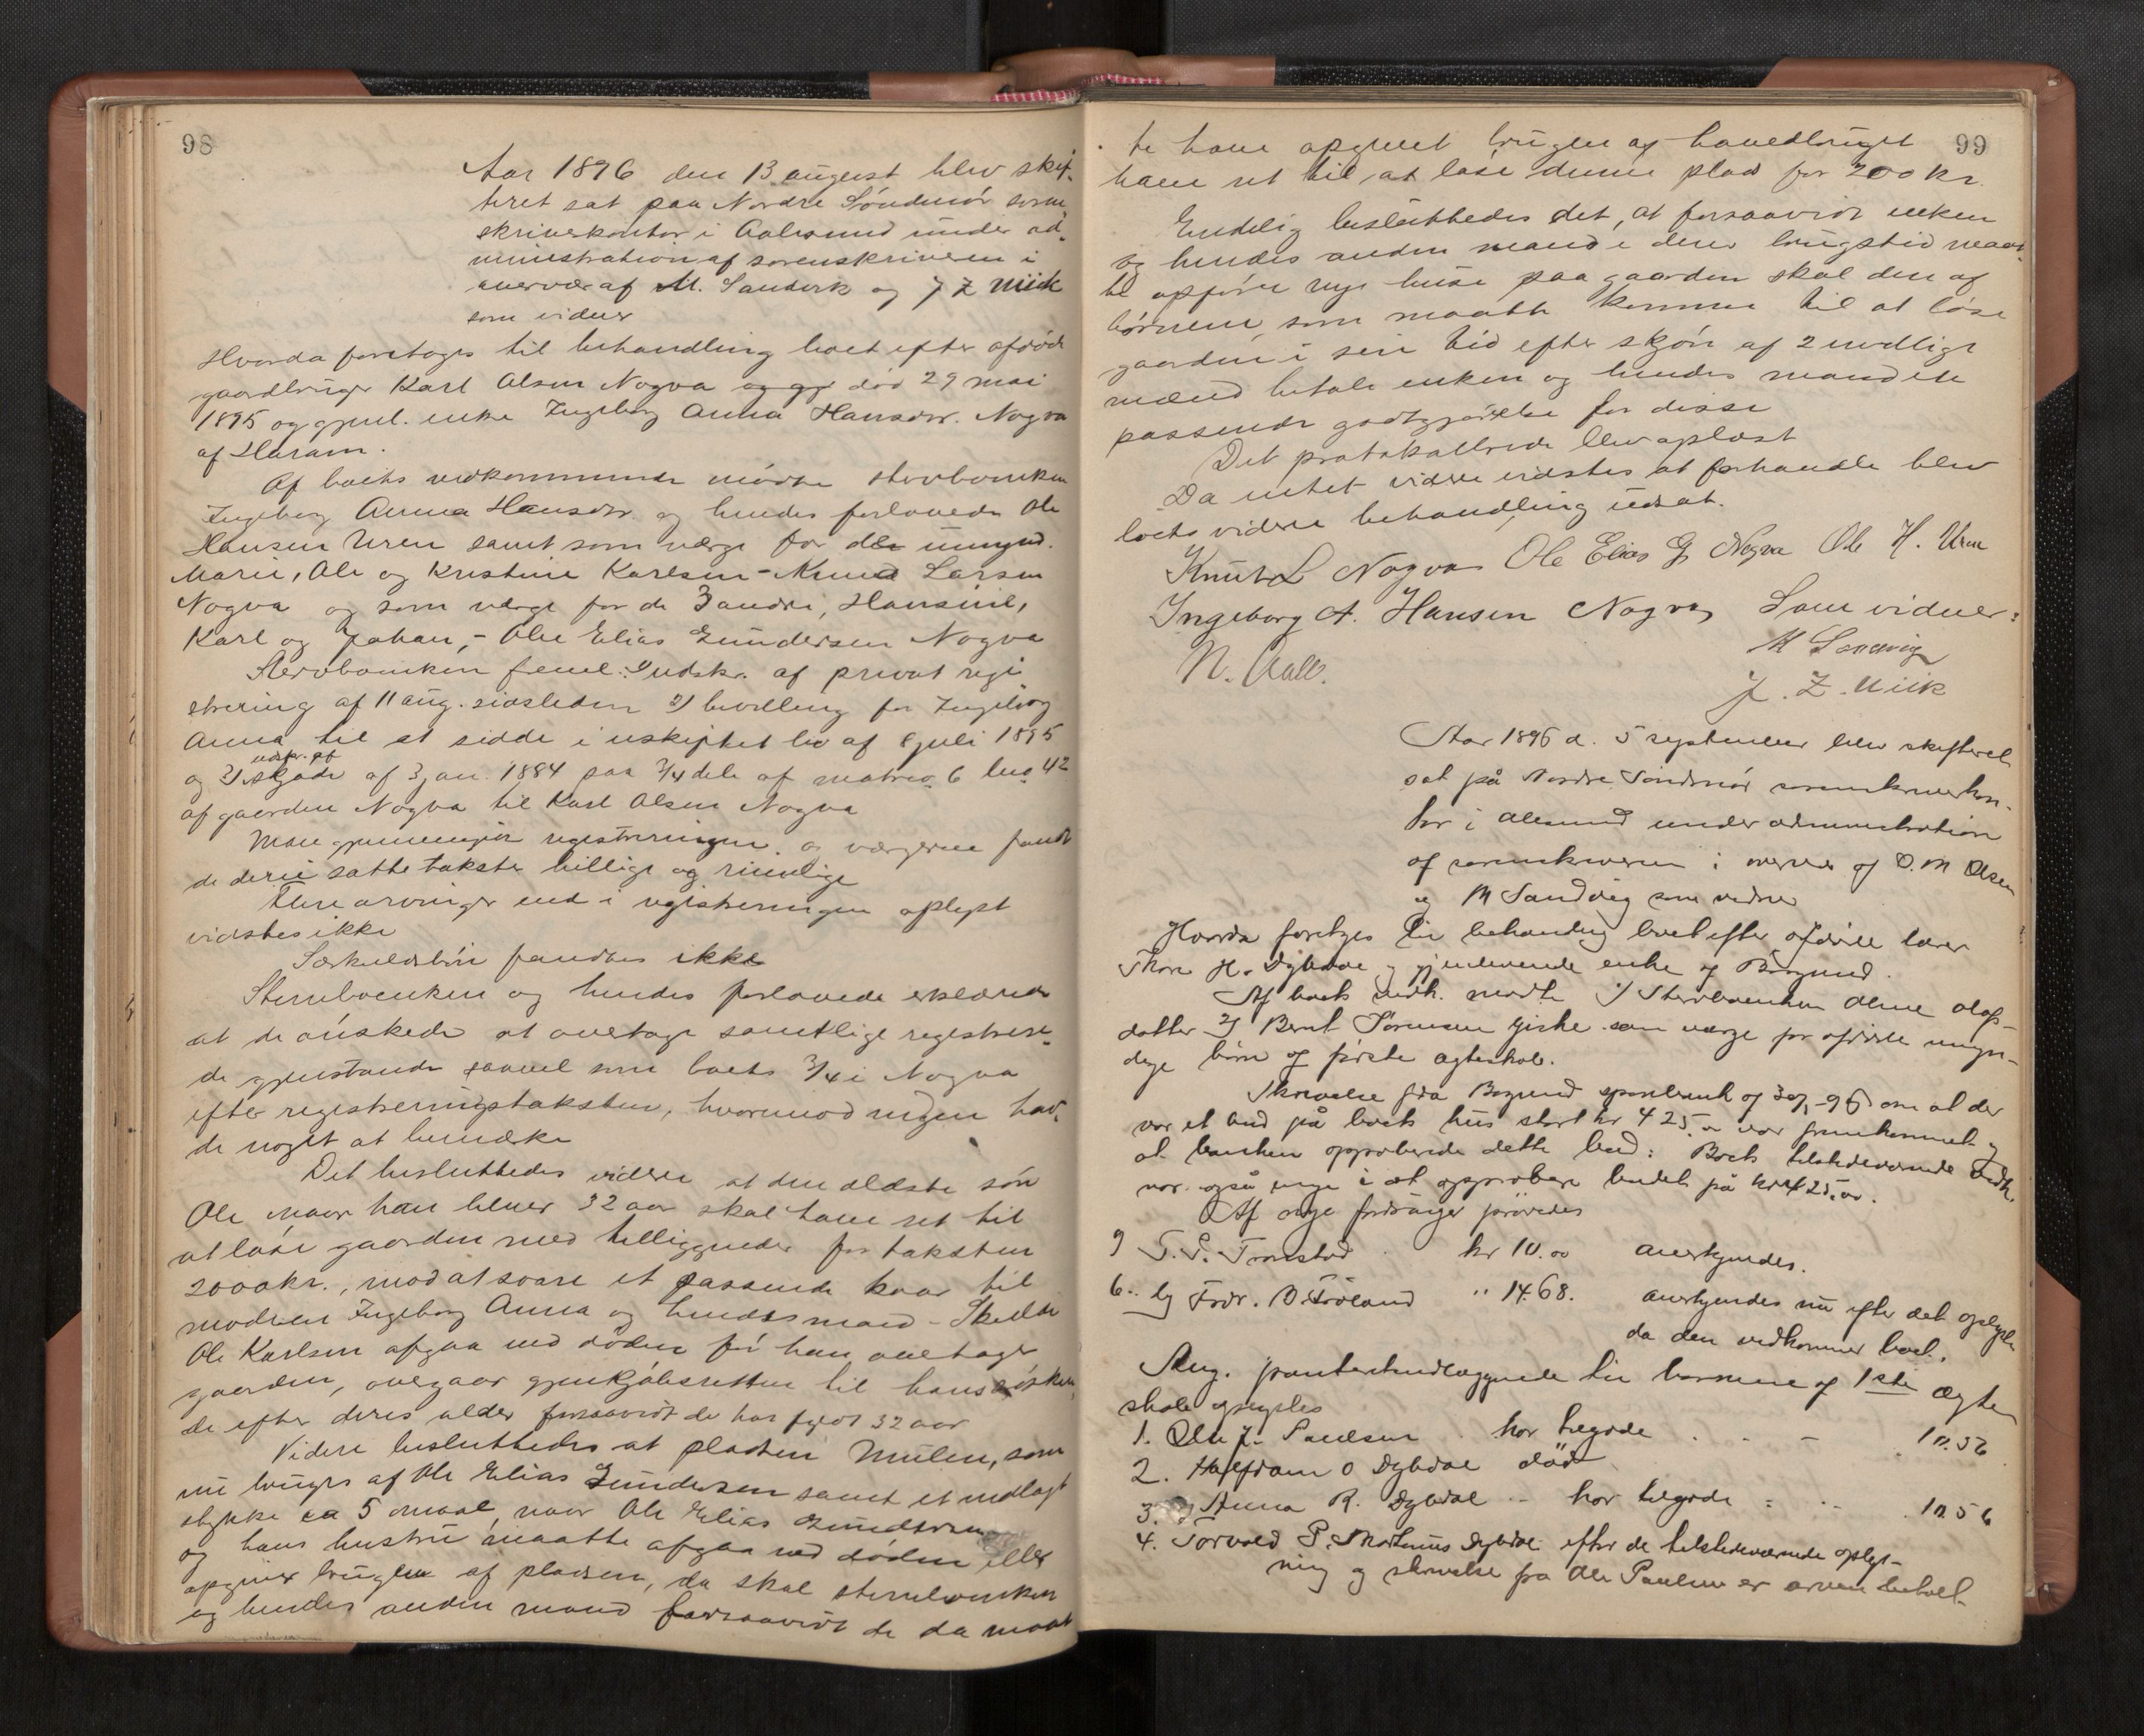 98
Aar 1896 den 13 august blev skif-
teret sat paa Nordre Søndmør soren-
skriverkontor i Aalesund under ad-
ministration af sorenskriveren i
overvær af M. Sandvik og J Z Uiik
som vidner
Hvorda foretoges til behandling boet efter afdøde
gaardbruger Karl Olsen Nogva og gj død 29 mai
1895 og gjenl. enke Ingeborg Anna Hansdtr. Nogva
af Haram.
Af boets vedkommende mødte stervboenken
Ingeborg Anna Hansdtr. og hendes forlovede Ole
Hansen Uren samt som værge for de umynd.
Marie, Ole og Kristine Karlsen - Knud Larsen
Nogva og som værge for de 3 andre, Hansine,
Karl og Johan, - Ole Elias Gundersen Nogva
Stervboenken freml: Udskr. af privat regi
strering af 11 aug. sidstleden 2) bevilling for Ingeborg
Anna til at sidde i uskiftet bo af 8 juli 1895
udskr. af
og 3) skjøde af 3 jan. 1884 paa 3/4 dele af matr no 6 lno 42
af gaarden Nogva til Karl Olsen Nogva
Man gjennemgik registreringen og værgerne fandt
de deri satte takster billige og rimelige
Flere arvinger end i registreringen oplyst
vidstes ikke
Særkuldsbørn fandtes ikke
Stervboenken og hendes forlovede erklærede
at de ønskede at overtage samtlige registrere-
de gjenstande saavel som boets 3/4 i Nogva
efter registreringstaksten, hvorimod ingen hav-
de noget at bemærke
Det besluttedes videre at den ældste søn
Ole naar han bliver 32 aar skal have ret til
at løse gaarden med tilliggender for taksten
2000 kr., mod at svare et passende kaar til
modren Ingeborg Anna og hendes mand - Skulde
Ole Karlsen afgaa ved døden før han overtager
gaarden, overgaar gjenkjøbsretten til hans søsken
de efter deres alder forsaavidt de har fyldt 32 aar
Videre besluttedes at pladsen Mulen, som
nu bruges af Ole Elias Gundersen samt et indlagt
stykke ca 5 maal, naar Ole Elias Gundersen
og hans hustru maatte afgaa ved døden eller
opgiver brugen af pladsen, da skal stervboenken
og hendes anden mand forsaavidt de da maat
99
te have opgivet brugen af hovedbruget
have ret til, at løse denne plads for 200 kr.
Endelig besluttedes det, at forsaavidt enken
og hendes anden mand i deres brugstid maat-
te opføre nye huse paa gaarden skal den af
børnene, som maatte komme til at løse
gaarden i sin tid efter skjøn af 2 uvillige
mænd betale enken og hendes mand en
passende godtgjørelse for disse
Det protokollerede blev oplæst
Da intet videre vidstes at forhandle blev
boets videre behandling udsat.
Knut L Nogva Ole Elias G Nogva Ole H. Uren
Ingeborg A. Hansen Nogva Som vidner:
N. Aall. M Sandvig
J. Z. Uiik
Aar 1896 d. 5 september blev skifteret
sat på Nordre Søndmør sorenskriverkon-
tor i Alesund under administration
af sorenskriveren i overvær af O. M Olsen
og M Sandvig som vidner
Hvorda foretoges til behandling boet efter afdøde lærer
Thore H. Dybdae og gjenlevende enke af Borgund.
Af boets vedk. mødte 1) Stervboenken Oline Olaf-
datter 2) Bernt Sørensen Giske som værge for afdøde umyn-
dige børn af første ægteskab.
Skrivelse fra Borgund sparebank af 30/7 - 96 om at der
var et bud på boets hus stort kr 425.00 var fremkommet og
at banken approberede dette bud: Boets tilstedeværende vedk.
var også enige i at approbere budet på kr 425.00.
Af nye fordringer prøvedes
P. Tronstad kr 10.00 anerkjendes.
6.. Fredr. O. Frøland " 14.68. anerkjendes nu efter det oplyste
da den vedkommer boet.
Ang. til børnene af 1ste ægte
skab oplystes
1. Ole J. Paulsen har tilgode 10.56
2. Halfdan O Dybdae død
3. Anna R. Dybdae har tilgode 10.56
4. Torvald P. Martinus Dybdae efter de tilstedeværende oplys-
ning og skrivelse fra Ole Paulsen er arven betalt